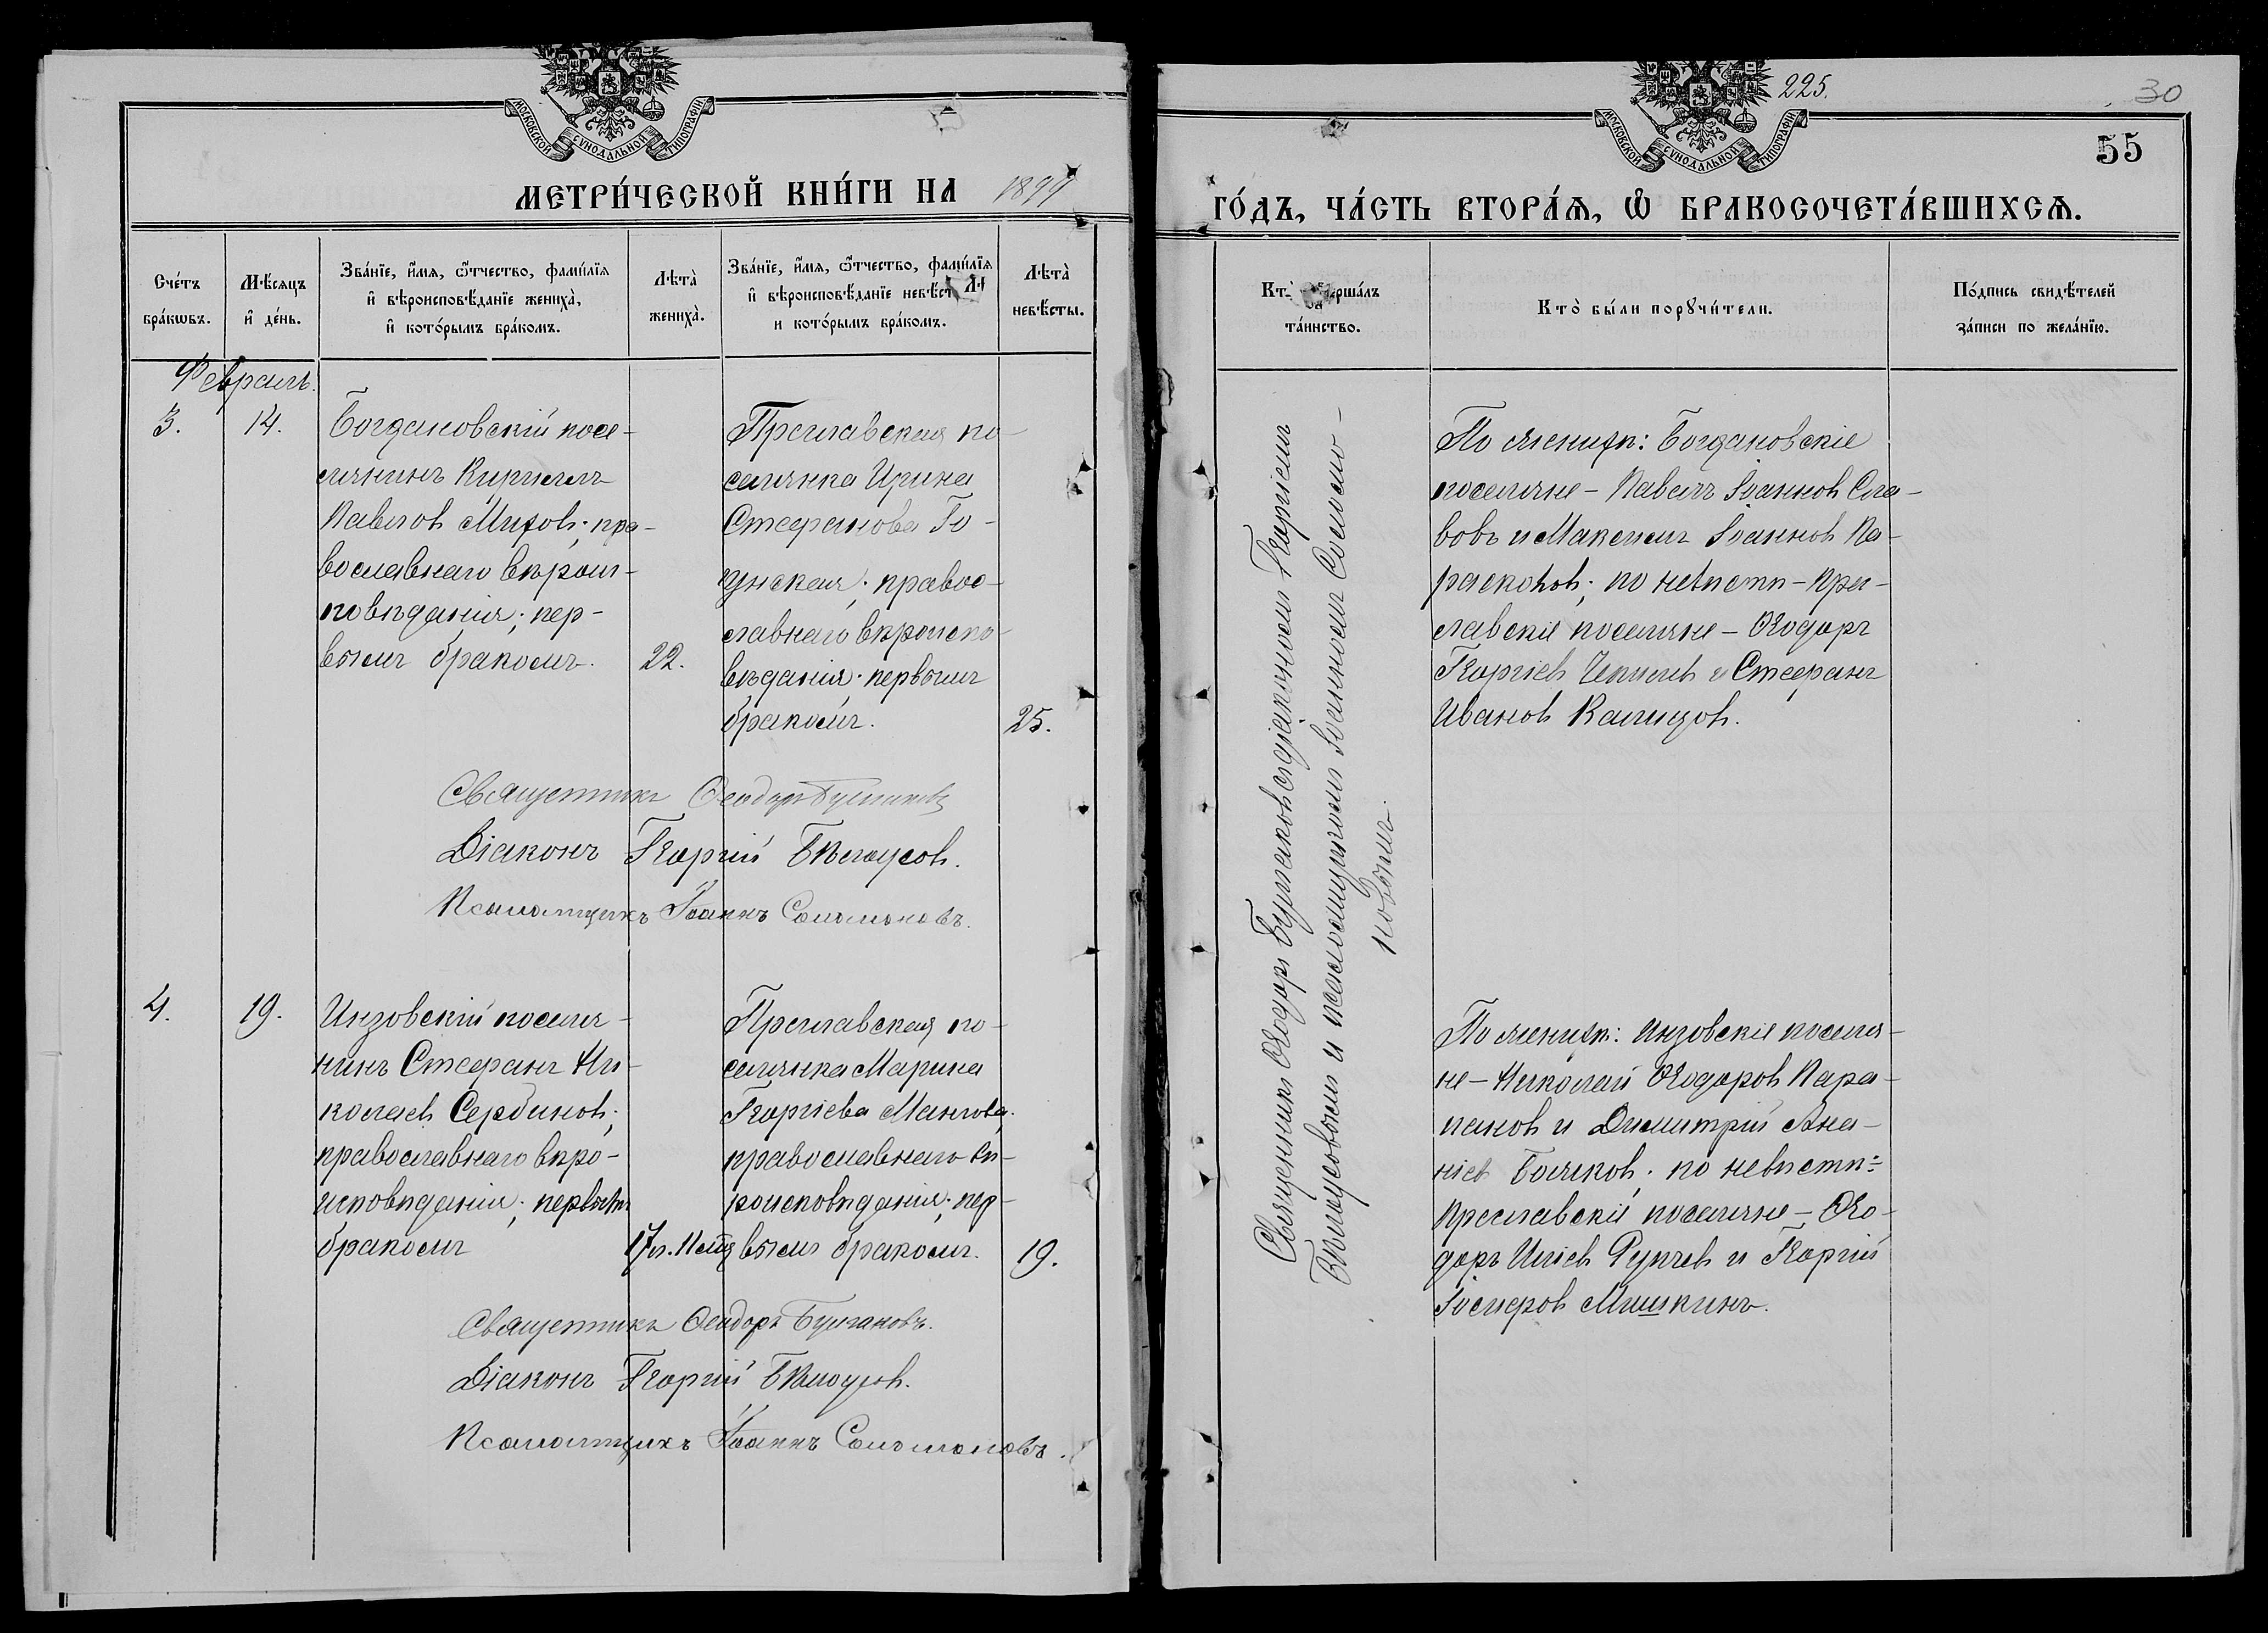 МОСКОВСКОЙ СѴНОДАЛЬНОЙ ТИПОГРАФІИ
МЕТРИ́ЧЕСКОЙ КНИ́ГИ НА 1899
Сче́тъ бра́кѡвъ.
Мѣ́сяцъ и҆ де́нь.
Зва́нїе, и҆́мѧ, ѻ҆́тчество, фами́лїѧ и҆ вѣроисповѣ́данїе жениха̀, и҆ кото́рымъ бра́комъ.
Лѣта̀ жениха̀.
Зва́нїе, и҆́мѧ, ѻ҆́тчество, фами́лїѧ и҆ вѣроисповѣ́данїе невѣ́сты и кото́рымъ бра́комъ.
Лѣта̀ невѣ́сты.
Февраль.
3.
14.
Богдановскій посе-
лянинъ Кириллъ
Павловъ Митовъ; пра-
вославнаго вѣроис-
повѣданія; пер-
вымъ бракомъ.
22.
Преславская по-
селянка Ирина
Стефанова
православнаго вѣроиспо-
вѣданія; первымъ
бракомъ.
25.
Священникъ Ѳеодоръ Булгаковъ
Діаконъ Георгій Бѣлоусовъ.
Псаломщикъ Іоаннъ Соломоновъ.
4.
19.
Инзовскій поселя-
нинъ Стефанъ Ни-
колаевъ Сербиновъ;
православнаго вѣро-
исповѣданія; первымъ
бракомъ
17л.
Преславская по-
селянка Марина
Георгіева Мангова
православнаго вѣ-
роисповѣданія; пер-
вымъ бракомъ.
19.
Священникъ Ѳеодоръ Булгаковъ.
Діаконъ Георгій Бѣлоусовъ.
Псаломщикъ Іоаннъ Соломоновъ.
225.
30
МОСКОВСКОЙ СѴНОДАЛЬНОЙ ТИПОГРАФІИ
55
ГО́ДЪ, ЧА́СТЬ ВТОРА́Ѧ, Ѽ БРАКОСОЧЕТА́ВШИХСѦ.
Кто̀ соверша́лъ та́инство.
Кто̀ бы́ли порꙋчи́тели.
По́дпись свидѣ́телей за́писи по жела́нїю.
Священникъ Ѳеодоръ Булгаковъ съ діакономъ Георгіемъ
Бѣлоусовымъ и псаломщикомъ Іоанномъ Соломо-
новымъ.
По женихѣ: Богдановскіе
поселяне - Павелъ Іоанновъ Сла-
вовъ и Максимъ Іоанновъ Па-
расковъ; по невѣстѣ - Пре-
славскіе поселяне - Ѳеодоръ
Георгіевъ и Стефанъ
Ивановъ Калицовъ.
По женихѣ: Инзовскіе поселя-
не - Николай Ѳеодоровъ Кара-
пановъ и Димитрій Ана-
ніевъ Бояковъ; по невѣстѣ:
Преславскіе поселяне - Ѳео-
доръ Иліевъ Рупчевъ и Георгій
Іосифовъ Мишкинъ.